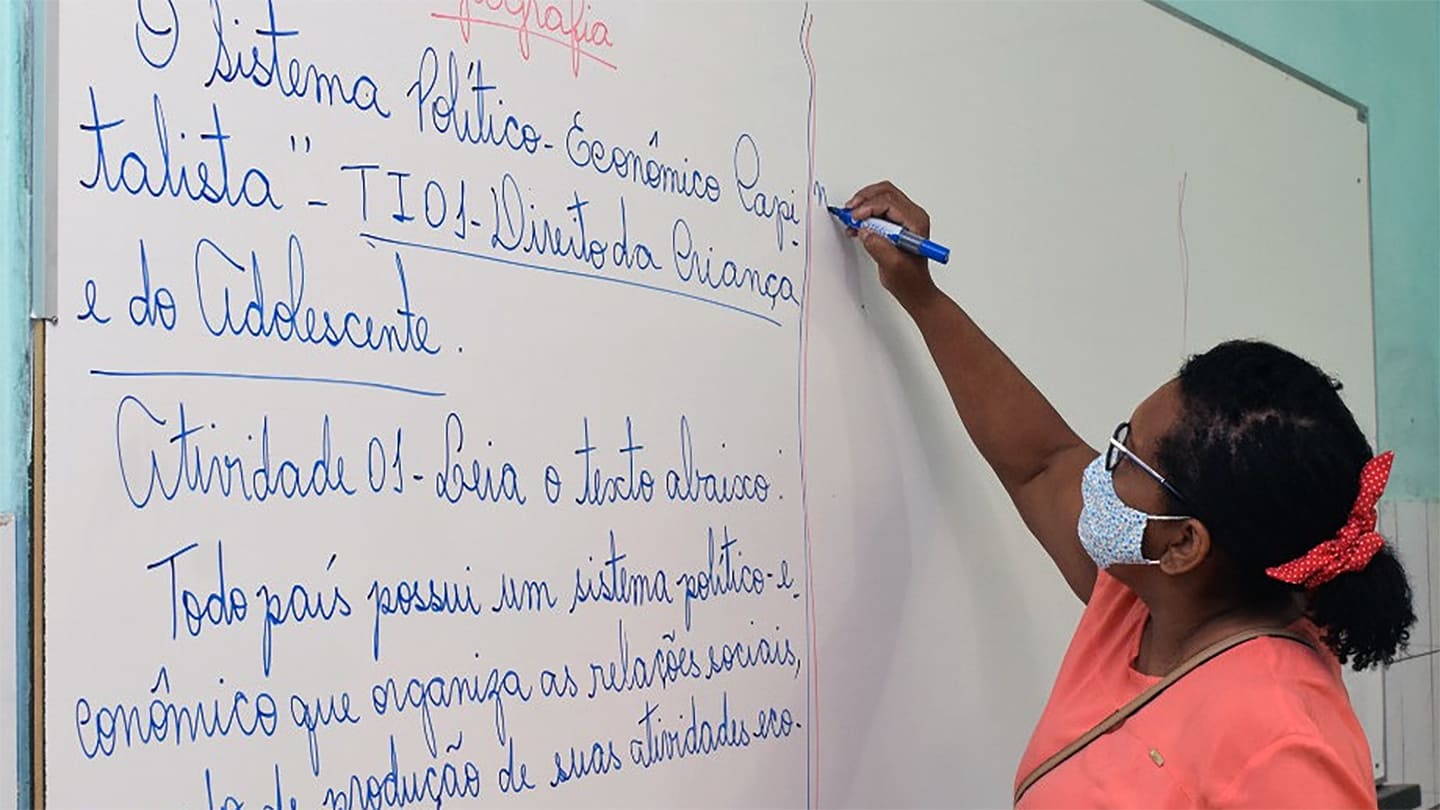 O Sistema Político-Econômico Capi-
talista" - TI01-Direito da Criança
e do Adolescente.
Atividade 01- Leia o texto abaixo:
Todo país possui um sistema político-e-
conômico que organiza as relações sociais,
de produção de suas atividades eco-